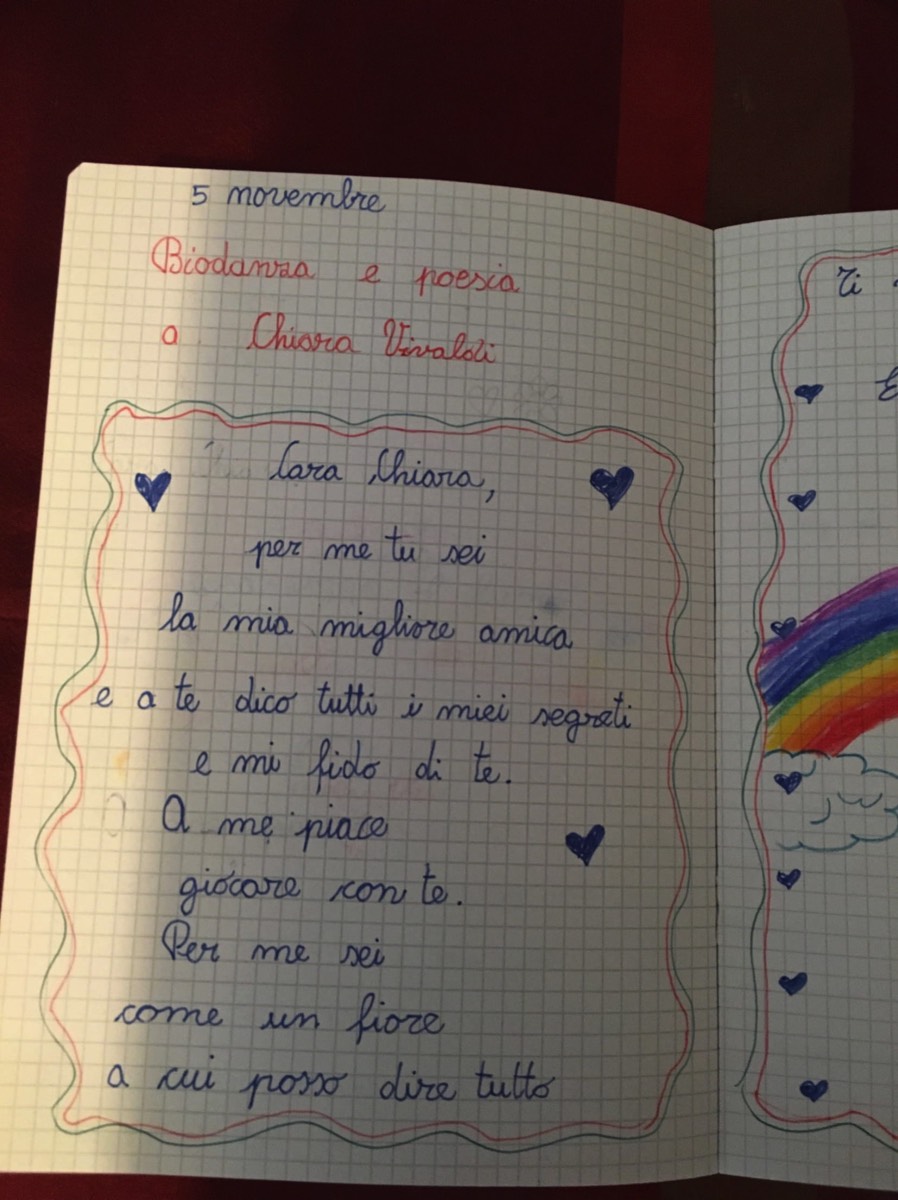 5 novembre
Biodanza e poesia
a Chiara Vivaldi
Cara Chiara,
per me tu sei
la mia migliore amica
e a te dico tutti i miei segreti
e mi fido di te.
A me piace
giocare con te.
Per me sei
come un fiore
a cui posso dire tutto
Ti